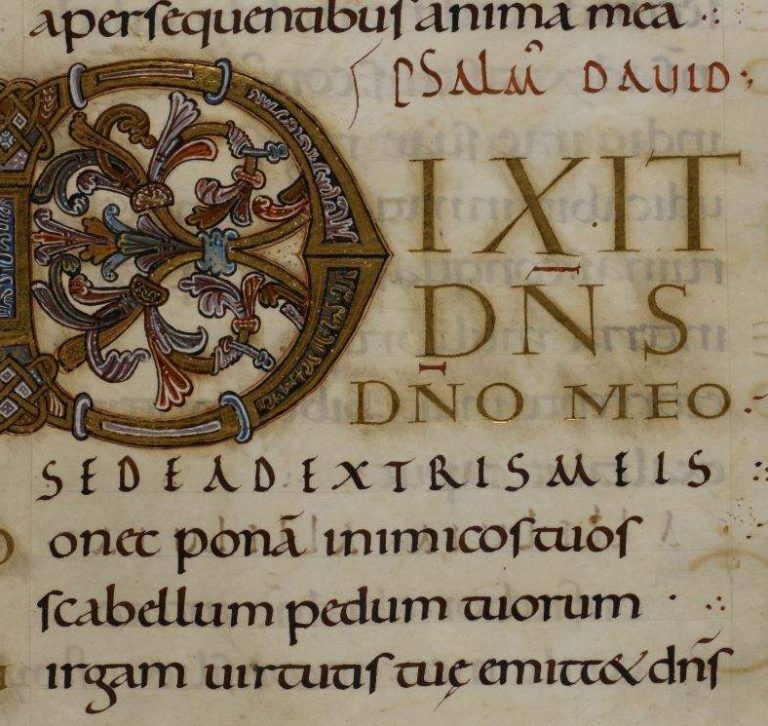 apersequentibus anima mea
PSALM̃ DAUID
DIXIT
DN̄S
DN̄O MEO
SEDE A DEXTRIS MEIS
onec ponā inimicos tuos
scabellum pedum tuorum
irgam uirtutis tuę emittet dn̄s